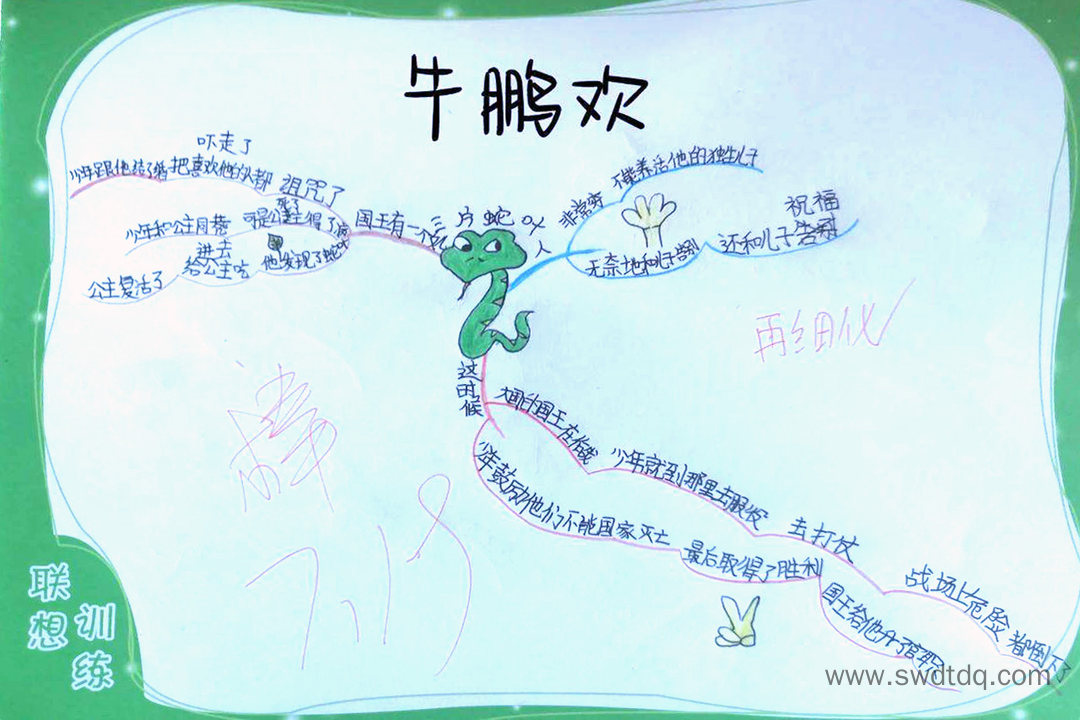 牛鹏欢
三片蛇叶
有一人
非常穷
不能养活他的独生儿子
无奈地和儿子告别
还和儿子告别
祝福
国王有一个
吓走了
少年跟他结了婚
把喜欢他的人都
诅咒了
死了
可是公主得了病
少年和公主同葬
他发现了蛇叶
进去
给公主吃
公主复活了
这时候
国王在作战
少年就到那里去服役
去打仗
战场上危险
都倒下了
少年鼓励他们不能国家灭亡
最后取得了胜利
国王给他升了官职
再细化
棒
7.19
联想
训练
www.swdtdq.com